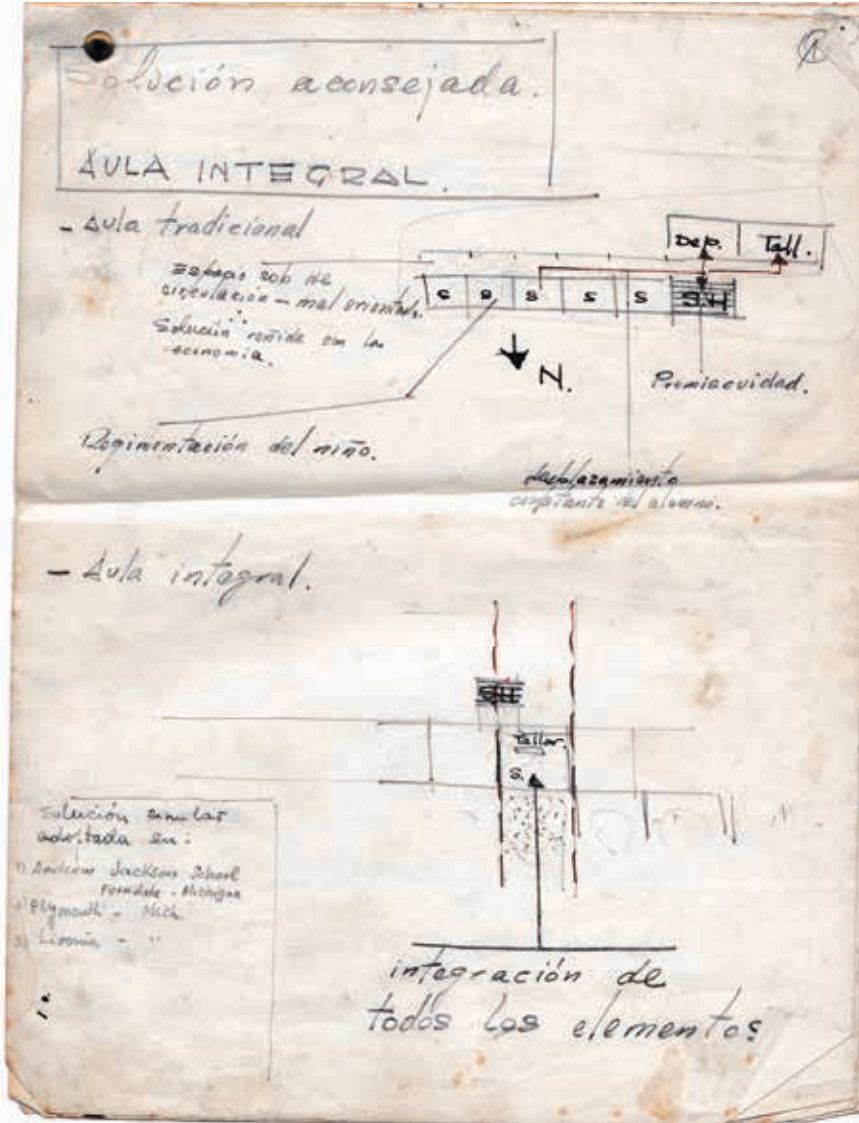 Solución aconsejada.
AULA INTEGRAL.
- Aula tradicional
Dep. Tall.
Espacio solo de
circulación - mal orientado.
Solución reñida con la
economía.
S S S S S S.H
N.
Promiscuidad.
Regimentación del niño.
desplazamiento
constante del alumno.
- Aula integral.
SH
Taller.
S.
Solución similar
adoptada en:
1) Andrew Jackson School
Ferndale - Michigan
2) Plymouth - Mich.
3) Livonia - "
integración de
todos los elementos